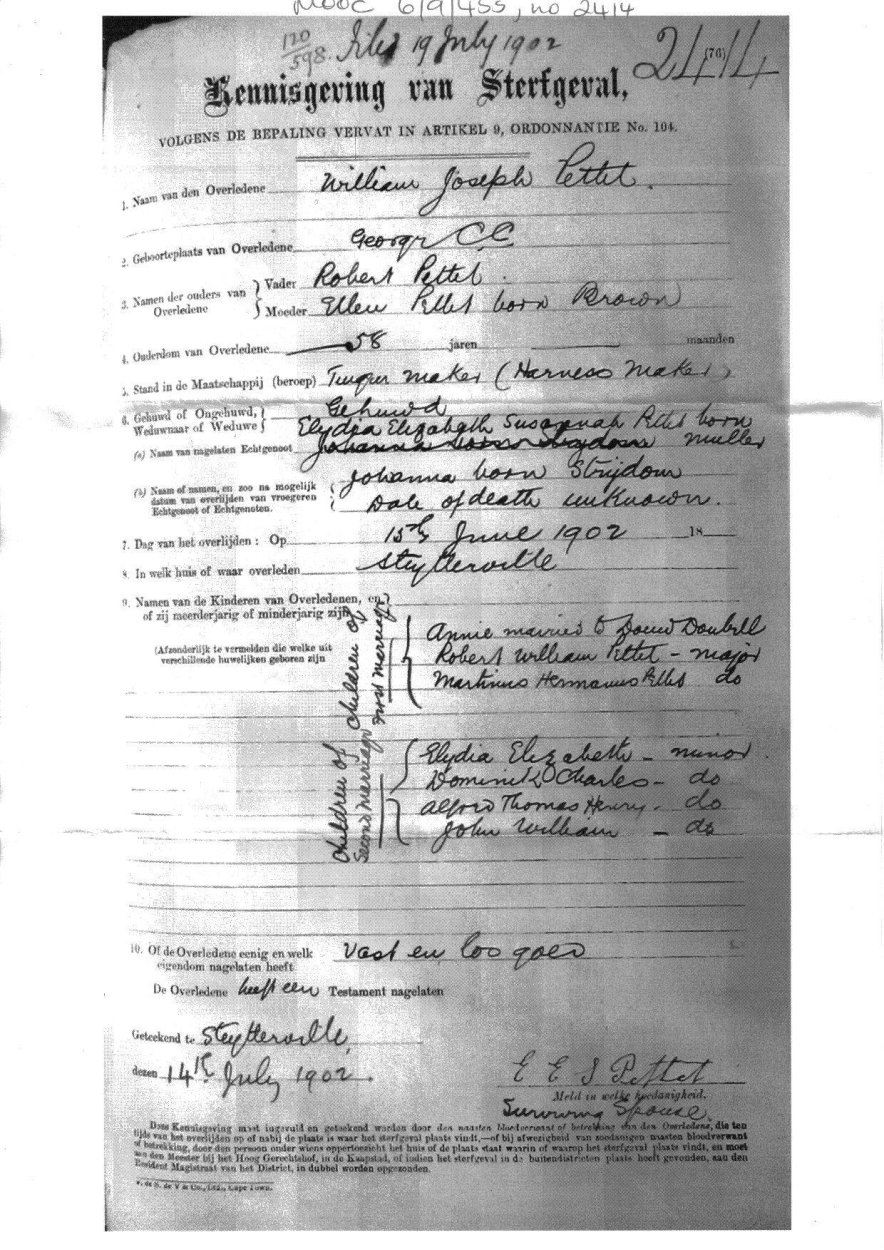 MOOC 6/9/455, no 2414
120/598. Filed 19 July 1902
2414 (76)
Kennisgeving van Sterfgeval,
VOLGENS DE BEPALING VERVAT IN ARTIKEL 9, ORDONNANTIE No. 104.
1. Naam van den Overledene William Joseph Pettet.
2. Geboorteplaats van Overledene George C C
3. Namen der ouders van Overledene } Vader Robert Pettet.
Moeder Ellen Pettet born Brown
4. Ouderdom van Overledene 58 jaren maanden
5. Stand in de Maatschappij (beroep) Tuigen maker (Harness Maker)
6. Gehuwd of Ongehuwd, Weduwnaar of Weduwe } Gehuwd
Elydia Elizabeth Susannah Pettet born
(a) Naam van nagelaten Echtgenoot Johanna born Strydom Muller
(b) Naam of namen, en zoo na mogelijk datum van overlijden van vroegeren Echtgenoot of Echtgenoten. { Johanna born Strijdom
Date of death unknown.
7. Dag van het overlijden: Op 15th June 1902 18
8. In welk huis of waar overleden Steytlerville
9. Namen van de Kinderen van Overledenen, en of zij meerderjarig of minderjarig zijn
(Afzonderlijk te vermelden die welke uit verschillende huwelijken geboren zijn
Children of first marriage
Annie married to Douw Doubell
Robert William Pettet - major
Martinus Hermanus Pettet do
Children of Second marriage
Elydia Elizabeth - minor
Dominik Charles - do
Alfred Thomas Henry - do
John William - do
10. Of de Overledene eenig en welk eigendom nagelaten heeft Vast en los goed
De Overledene heeft een Testament nagelaten
Geteekend te Steytlerville,
dezen 14th July 1902.
E E S Pettet
Meld in welke hoedanigheid.
Surviving Spouse.
Deze Kennisgeving moet ingevuld en geteekend worden door den naasten bloedverwant of betrekking van den Overledene, die ten
tijde van het overlijden op of nabij de plaats is waar het sterfgeval plaats vindt,—of bij afwezigheid van zoodanigen naasten bloedverwant
of betrekking, door den persoon onder wiens oppertoezicht het huis of de plaats staat waarin of waarop het sterfgeval plaats vindt, en moet
aan den Meester bij het Hoog Gerechtshof, in de Kaapstad, of indien het sterfgeval in de buitendistricten plaats heeft gevonden, aan den
Resident Magistraat van het District, in dubbel worden opgezonden.
V. de S. de V & Co., Ltd., Cape Town.